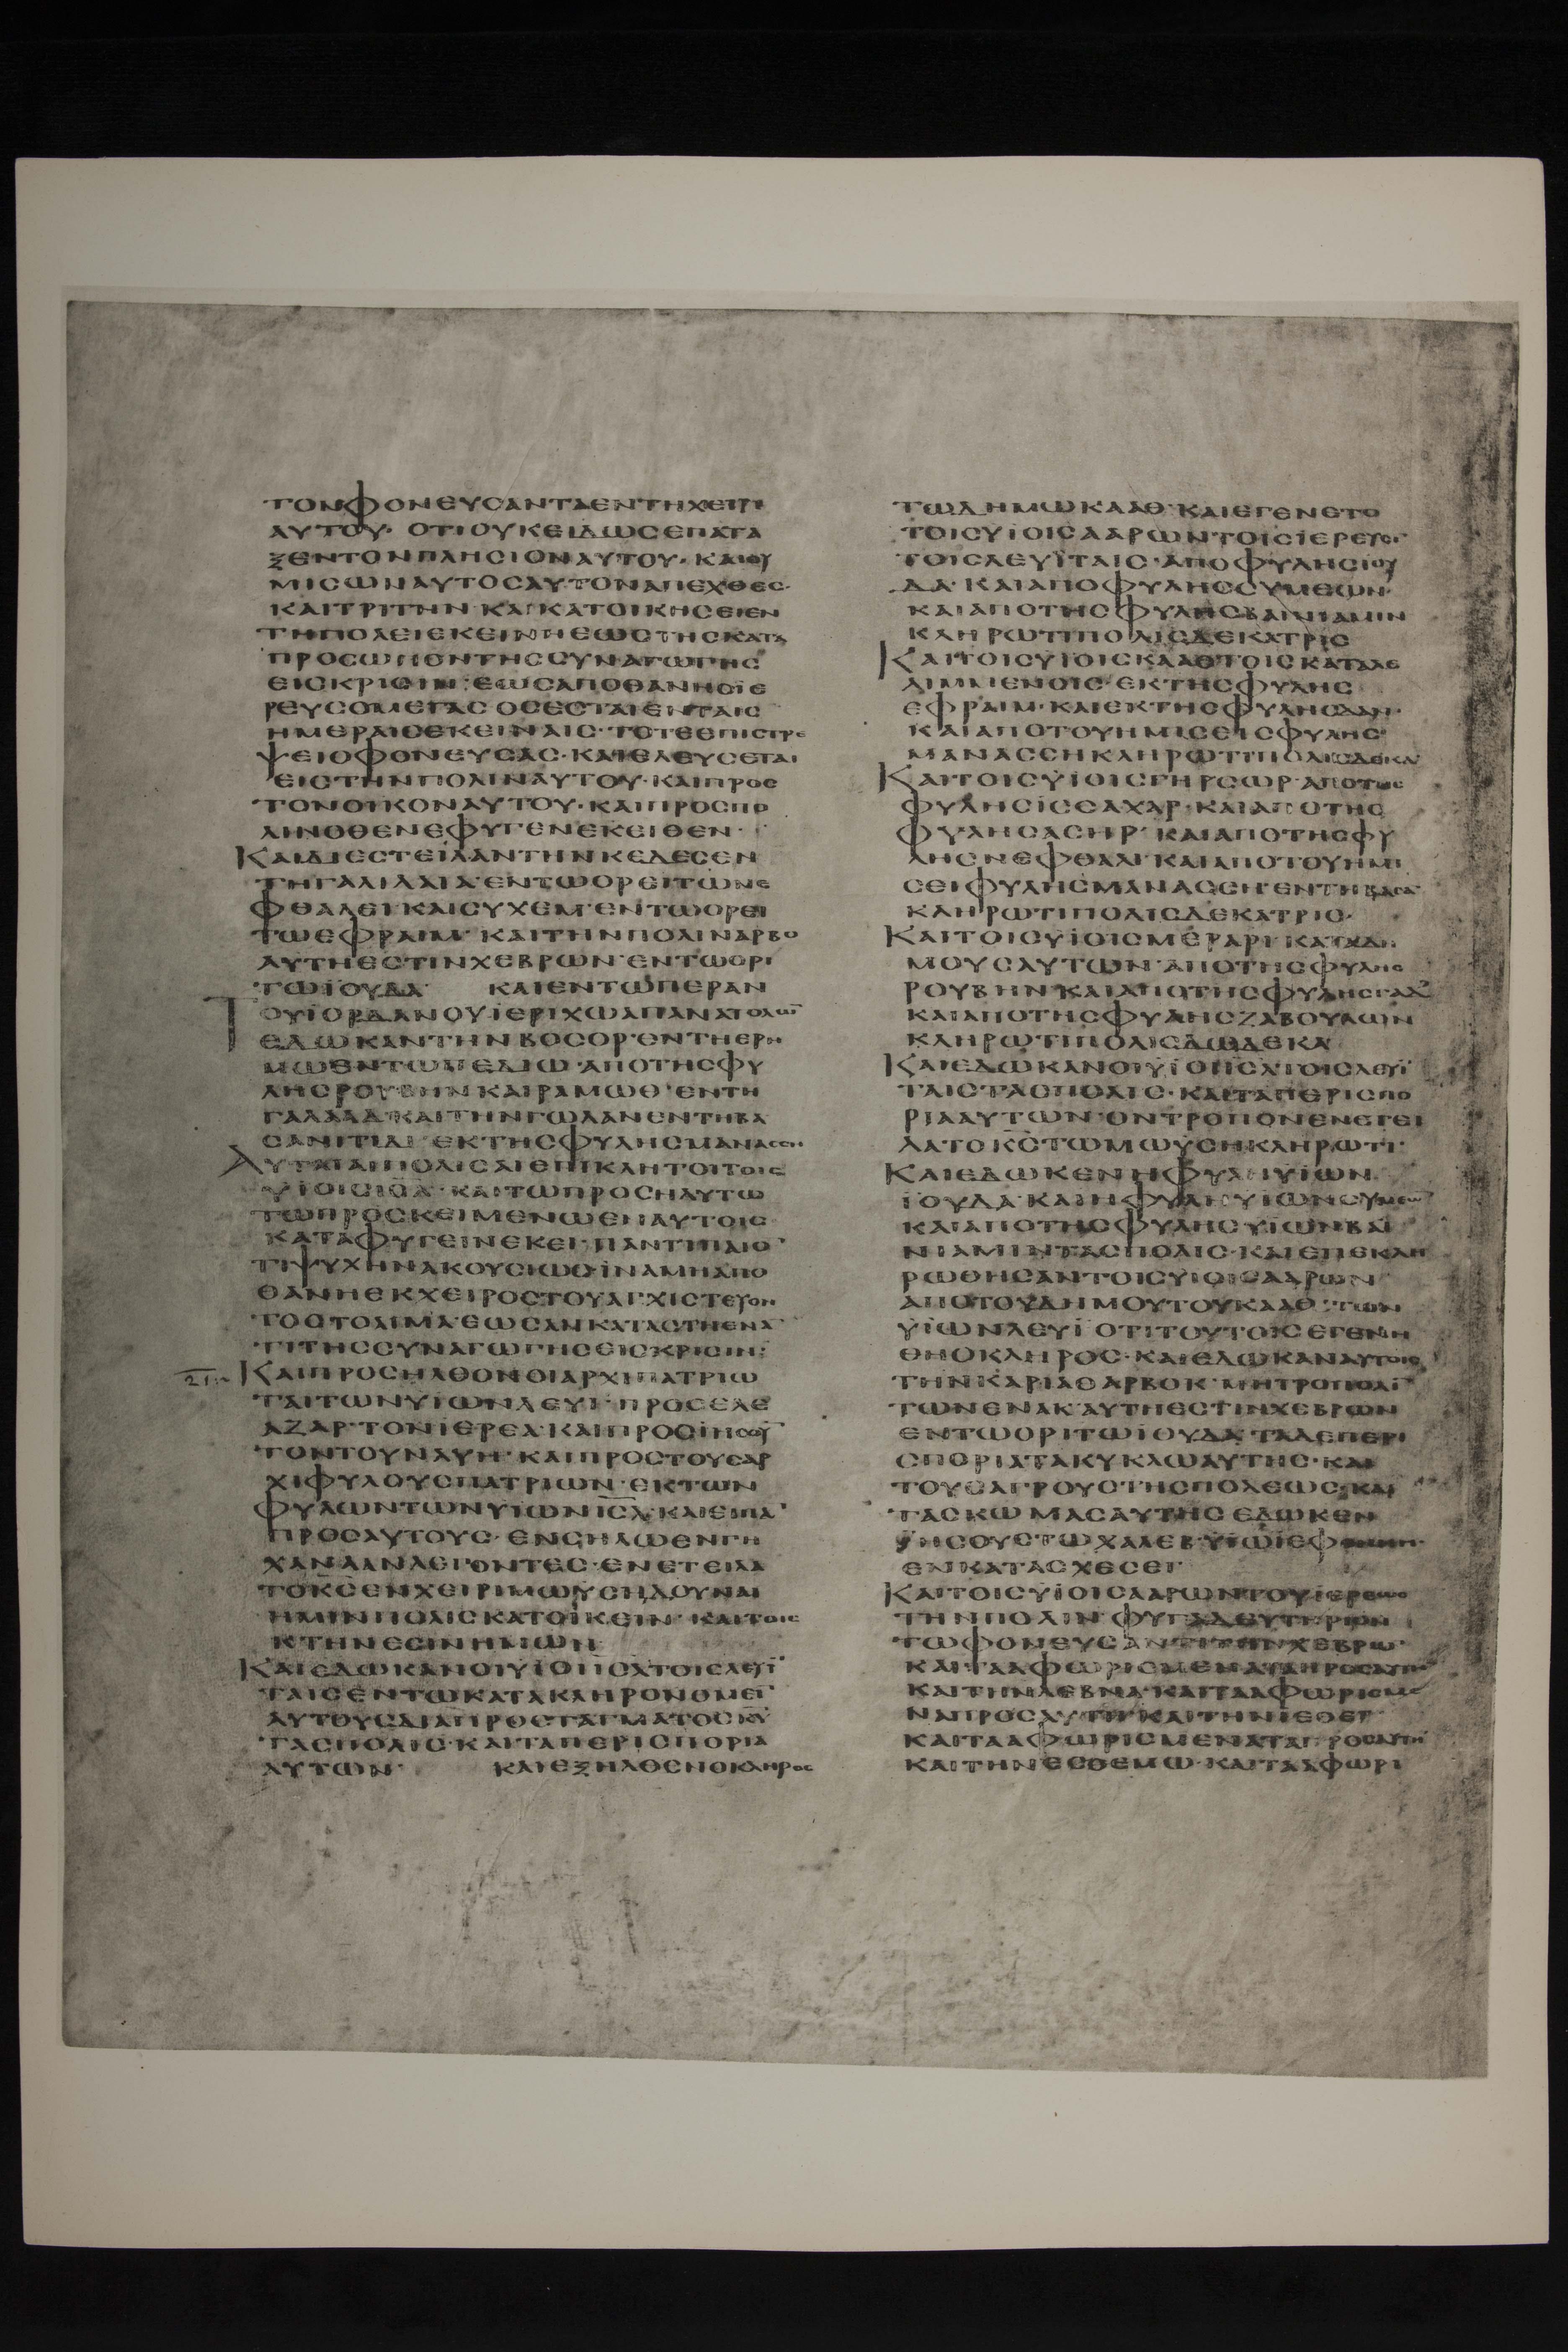 ΤΟΝΦΟΝΕΥСΑΝΤΑΕΝΤΗΧΕΙΡΙ
ΑΥΤΟΥ· ΟΤΙΟΥΚΕΙΔΩСΕΠΑΤΑ
ΞΕΝΤΟΝΠΛΗСΙΟΝΑΥΤΟΥ· ΚΑΙΟΥ
ΜΙСΩΝΑΥΤΟСΑΥΤΟΝΑΠΕΧΘΕС·
ΚΑΙΤΡΙΤΗΝ ΚΑΙΚΑΤΟΙΚΗСΕΙΕΝ
ΤΗΠΟΛΕΙΕΚΕΙΝΗΕΩСΤΗСΚΑΤΑ
ΠΡΟСΩΠΟΝΤΗССΥΝΑΓΩΓΗС
ΕΙСΚΡΙСΙΝ: ΕΩСΑΠΟΘΑΝΗΟΪΕ
ΡΕΥСΟΜΕΓΑС ΟСΕСΤΑΙΕΝΤΑΙС
ΗΜΕΡΑΙСΕΚΕΙΝΑΙС· ΤΟΤΕΕΠΙСΤΡΕ
ΨΕΙΟΦΟΝΕΥСΑС· ΚΑΙΕΛΕΥСΕΤΑΙ
ΕΙСΤΗΝΠΟΛΙΝΑΥΤΟΥ· ΚΑΙΠΡΟС
ΤΟΝΟΙΚΟΝΑΥΤΟΥ· ΚΑΙΠΡΟСΠΟ
ΛΙΝΟΘΕΝΕΦΥΓΕΝΕΚΕΙΘΕΝ·
ΚΑΙΔΙΕСΤΕΙΛΑΝΤΗΝΚΕΔΕСΕΝ
ΤΗΓΑΛΙΛΑΙΑ·ΕΝΤΩΟΡΕΙΤΩΝΕ
ΦΘΑΛΕΙ·ΚΑΙСΥΧΕΜ·ΕΝΤΩΟΡΕΙ
ΤΩΕΦΡΑΙΜ· ΚΑΙΤΗΝΠΟΛΙΝΑΡΒΟ
ΑΥΤΗΕСΤΙΝΧΕΒΡΩΝ·ΕΝΤΩΟΡΙ
ΤΩΪΟΥΔΑ· ΚΑΙΕΝΤΩΠΕΡΑΝ
ΤΟΥΪΟΡΔΑΝΟΥΪΕΡΙΧΩΑΠΑΝΑΤΟΛΩ̅
ΕΔΩΚΑΝΤΗΝΒΟСΟΡ·ΕΝΤΗΕΡΗ
ΜΩΕΝΤΩΠΕΔΙΩ·ΑΠΟΤΗСΦΥ
ΛΗСΡΟΥΒΗΝΚΑΙΡΑΜΩΘ·ΕΝΤΗ
ΓΑΛΑΑΔ·ΚΑΙΤΗΝΓΩΛΑΝΕΝΤΗΒΑ
СΑΝΙΤΙΔΙ·ΕΚΤΗСΦΥΛΗСΜΑΝΑССΗ
ΑΥΤΑΙΑΙΠΟΛΙСΑΙΕΠΙΚΛΗΤΟΙΤΟΙС
ΥΪΟΙСΙΗΛ·ΚΑΙΤΩΠΡΟСΗΛΥΤΩ
ΤΩΠΡΟСΚΕΙΜΕΝΩΕΝΑΥΤΟΙС
ΚΑΤΑΦΥΓΕΙΝΕΚΕΙ·ΠΑΝΤΙΠΑΙΟ̅
ΤΙΨΥΧΗΝΑΚΟΥСΙΩС·ΪΝΑΜΗΑΠΟ
ΘΑΝΗΕΚΧΕΙΡΟСΤΟΥΑΓΧΙСΤΕΥΟΝ
ΤΟСΤΟΑΙΜΑ·ΕΩСΑΝΚΑΤΑСΤΗΕΝΑ̅
ΤΙΤΗССΥΝΑΓΩΓΗСΕΙСΚΡΙСΙΝ:
ΚΑΙΠΡΟСΗΛΘΟΝΟΙΑΡΧΙΠΑΤΡΙΩ
ΤΑΙΤΩΝΥΙΩΝΛΕΥΙ·ΠΡΟСΕΛΕ
ΑΖΑΡ·ΤΟΝΙΕΡΕΑ·ΚΑΙΠΡΟСΙΗСΟΥ̅
ΤΟΝΤΟΥΝΑΥΗ·ΚΑΙΠΡΟСΤΟΥСΑΡ
ΧΙΦΥΛΟΥСΠΑΤΡΙΩΝ·ΕΚΤΩΝ
ΦΥΛΩΝΤΩΝΥΙΩΝΙΣΛ·ΚΑΙΕΙΠΑ̅
ΠΡΟСΑΥΤΟΥС·ΕΝСΗΛΩΕΝΓΗ
ΧΑΝΑΑΝΛΕΓΟΝΤΕС·ΕΝΕΤΕΙΛΑ
ΤΟΚ̅С̅ΕΝΧΕΙΡΙΜΩΫСΗΔΟΥΝΑΙ
ΗΜΙΝΠΟΛΙСΚΑΤΟΪΚΕΙΝ·ΚΑΙΤΟΙС
ΚΤΗΝΕСΙΝΗΜΩΝ
ΚΑΙΕΔΩΚΑΝΟΙΥΪΟΙΙΣΛΤΟΙСΛΕΥΪ
ΤΑΙСΕΝΤΩΚΑΤΑΚΛΗΡΟΝΟΜΕΙ̅
ΑΥΤΟΥСΔΙΑΠΡΟСΤΑΓΜΑΤΟСΚ̅Υ̅
ΤΑСΠΟΛΙС·ΚΑΙΤΑΠΕΡΙСΠΟΡΙΑ
ΑΥΤΩΝ· ΚΑΙΕΞΗΛΘΕΝΟΚΛΗΡΟС
ΤΩΔΗΜΩΚΑΑΘ·ΚΑΙΕΓΕΝΕΤΟ
ΤΟΙСΥΪΟΙСΑΑΡΩΝΤΟΙСΪΕΡΕΥСΙ
ΤΟΙСΛΕΥΪΤΑΙС·ΑΠΟΦΥΛΗСΙΟΥ
ΔΑ·ΚΑΙΑΠΟΦΥΛΗССΥΜΕΩΝ·
ΚΑΙΑΠΟΤΗСΦΥΛΗСΒΑΙΝΙΑΜΙΝ
ΚΛΗΡΩΤΙΠΟΛΙСΔΕΚΑΤΡΙС
ΚΑΙΤΟΙСΥΪΟΙСΚΑΑΘΤΟΙСΚΑΤΑΛΕ
ΛΙΜΜΕΝΟΙС·ΕΚΤΗСΦΥΛΗС
ΕΦΡΑΙΜ·ΚΑΙΕΚΤΗСΦΥΛΗСΔΑΝ·
ΚΑΙΑΠΟΤΟΥΗΜΙСΕΙСΦΥΛΗС
ΜΑΝΑССΗΚΛΗΡΩΤΙΠΟΛΙСΔΕΚΑ
ΚΑΙΤΟΙСΥΪΟΙСΓΗΡСΩΡ·ΑΠΟΤΗС
ΦΥΛΗСΪССΑΧΑΡ·ΚΑΙΑΠΟΤΗС
ΦΥΛΗСΑСΗΡ·ΚΑΙΑΠΟΤΗСΦΥ
ΛΗСΝΕΦΘΑΛΙ·ΚΑΙΑΠΟΤΟΥΗΜΙ
СΕΙΦΥΛΗСΜΑΝΑССΗ·ΕΝΤΗΒΑСΑ̅
ΚΛΗΡΩΤΙΠΟΛΙСΔΕΚΑΤΡΙС·
ΚΑΙΤΟΙСΥΪΟΙСΜΕΡΑΡΙ·ΚΑΤΑΔΗ
ΜΟΥСΑΥΤΩΝ·ΑΠΟΤΗСΦΥΛΗС
ΡΟΥΒΗΝ·ΚΑΙΑΠΟΤΗСΦΥΛΗСΓΑΔ
ΚΑΙΑΠΟΤΗСΦΥΛΗСΖΑΒΟΥΛΩΝ
ΚΛΗΡΩΤΙΠΟΛΙСΔΩΔΕΚΑ
ΚΑΙΕΔΩΚΑΝΟΙΥΪΟΙΙΣΛΤΟΙСΛΕΥΪ
ΤΑΙСΤΑСΠΟΛΙС·ΚΑΙΤΑΠΕΡΙСΠΟ
ΡΙΑΑΥΤΩΝ·ΟΝΤΡΟΠΟΝΕΝΕΤΕΙ
ΛΑΤΟΚ̅С̅ΤΩΜΩΫСΗΚΛΗΡΩΤΙ·
ΚΑΙΕΔΩΚΕΝΗΦΥΛΗΥΪΩΝ
ΪΟΥΔΑ·ΚΑΙΗΦΥΛΗΥΙΩΝСΥΜΕΩ̅
ΚΑΙΑΠΟΤΗСΦΥΛΗСΥΪΩΝΒΑΙ
ΝΙΑΜΙΝΤΑСΠΟΛΙС·ΚΑΙΕΠΕΚΛΗ
ΡΩΘΗСΑΝΤΟΙСΥΪΟΙСΑΑΡΩΝ
ΑΠΟΤΟΥΔΗΜΟΥΤΟΥΚΑΑΘ·ΤΩΝ
ΥΪΩΝΛΕΥΪ·ΟΤΙΤΟΥΤΟΙСΕΓΕΝΗ
ΘΗΟΚΛΗΡΟС·ΚΑΙΕΔΩΚΑΝΑΥΤΟΙС
ΤΗΝΚΑΡΙΑΘΑΡΒΟΚ·ΜΗΤΡΟΠΟΛΙ̅
ΤΩΝΕΝΑΚ·ΑΥΤΗΕСΤΙΝΧΕΒΡΩΝ
ΕΝΤΩΟΡΙΤΩΪΟΥΔΑ·ΤΑΔΕΠΕΡΙ
СΠΟΡΙΑΤΑΚΥΚΛΩΑΥΤΗС·ΚΑΙ
ΤΟΥСΑΓΡΟΥСΤΗСΠΟΛΕΩС·ΚΑΙ
ΤΑСΚΩΜΑСΑΥΤΗСΕΔΩΚΕΝ
ΪΗСΟΥСΤΩΧΑΛΕΒ·ΥΪΩΪΕΦΟΝΝΗ
ΕΝΚΑΤΑСΧΕСΕΙ·
ΚΑΙΤΟΙСΥΪΟΙСΑΑΡΩΝΤΟΥΪΕΡΕΩС
ΤΗΝΠΟΛΙΝΦΥΓΑΔΕΥΤΗΡΙΟΝ
ΤΩΦΟΝΕΥСΑΝΤΙΤΗΝΧΕΒΡΩ̅
ΚΑΙΤΑΑΦΩΡΙСΜΕΝΑΤΑΠΡΟСΑΥΤΗ
ΚΑΙΤΗΝΛΕΒΝΑ·ΚΑΙΤΑΑΦΩΡΙСΜΕ
ΝΑΠΡΟСΑΥΤΗ·ΚΑΙΤΗΝΙΕΘΕΡ·
ΚΑΙΤΑΑΦΩΡΙСΜΕΝΑΤΑΠΡΟСΑΥΤΗ
ΚΑΙΤΗΝΕСΘΕΜΩ·ΚΑΙΤΑΑΦΩΡΙ